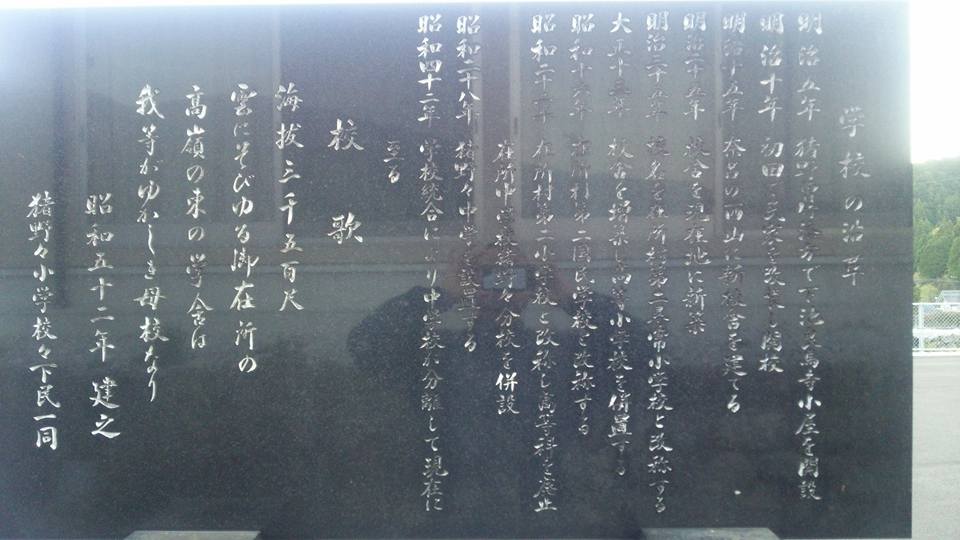 学校の沿革
明治五年
明治十年 初田
明治十五年 奈呂の西山に新校舎を建てる
明治二十五年 校舎を現在地に新築
明治三十五年 第二尋常小学校と改称する
大正十三年 校舎を増築し 小学校を併置する
昭和十六年 在所村第二国民学校と改称する
昭和二十二年 在所村第二小学校と改称し高等科を廃止
在所中学校猪野々分校を併設
昭和二十八年 猪野々中学を設置する
昭和四十二年 学校統合により中学校が分離して現在に
至る
校歌
海抜三千五百尺
雲にそびゆる御在所の
高嶺の東の学舎は
我等がゆかしき母校なり
昭和五十二年 建之
猪野々小学校々下民一同